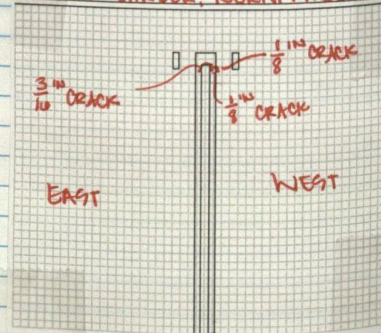 1/8 IN CRACK
3/16 IN CRACK
1/8 IN CRACK
WEST
EAST